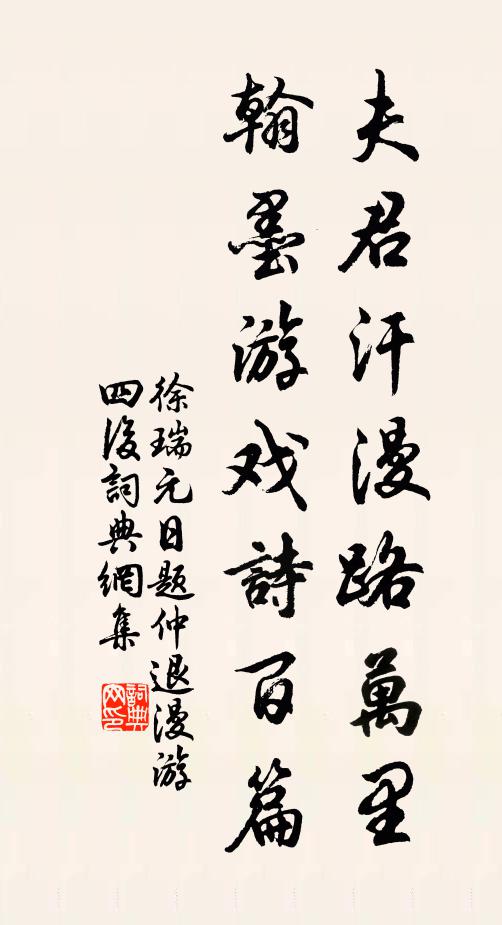 夫君汗漫路萬里
翰墨游戏詩百篇
徐瑞元日题仲退漫游
四後詞典網集
詞典网印